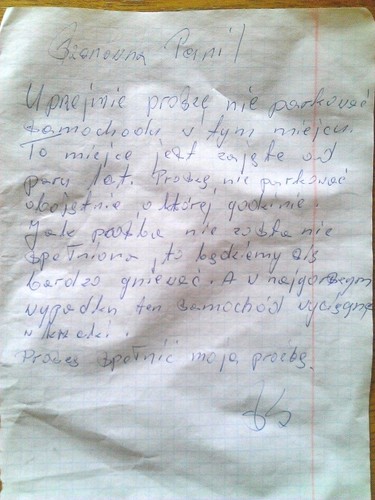 Szanowna Pani!
Uprejmie proszę nie parkować
samochodu w tym miejscu.
To miejsce jest zajęte od
paru lat. Proszę nie parkować
obojętnie o której godzinie.
Jak prośba nie zosta nie
spełniona to będziemy się
bardzo gniewać. A w najgorszym
wypadku ten samochód wyciągnę
w krzaki.
Proszę spełnić moja prośbę.